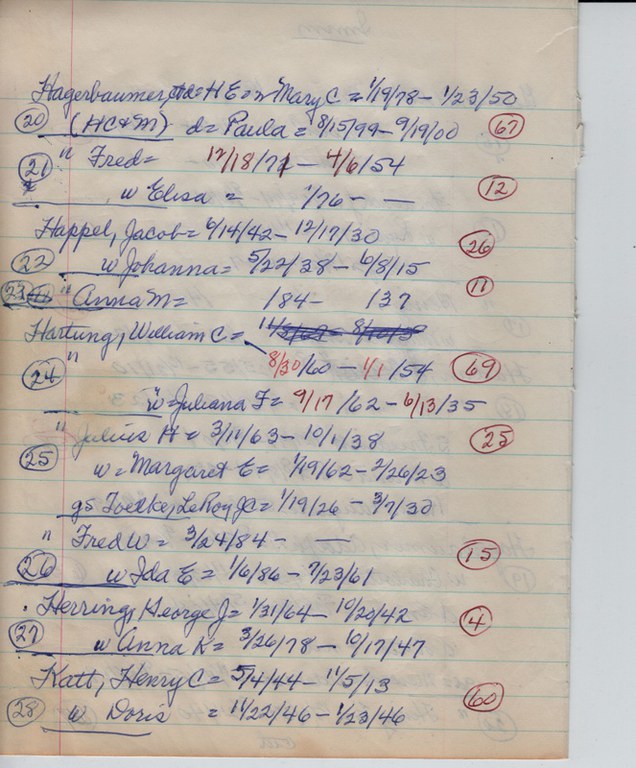 Hagerbaumer, HE = w Mary C = 1/19/78 - 1/23/50
(20) (HC & M) d = Paula = 8/15/99 - 9/19/00 (67)
(21) " Fred = 12/18/71 - 4/6/54
w Elisa = 1/76 - — (12)
Happel, Jacob = 6/14/42 - 12/17/30 (26)
(22) w Johanna = 5/22/38 - 6/8/15
(23) " Anna M = 184- 137 (11)
Hartung, William C =
(24) " 8/30/60 - 1/1/54 (69)
w = Juliana F = 9/17/62 - 6/13/35
" Julius H = 3/11/63 - 10/1/38 (25)
(25) w = Margaret E = 1/19/62 - 2/26/23
gs Toedke, LeRoy JC = 1/19/26 - 3/7/30
" Fred W = 3/24/84 - — (15)
(26) w Ida E = 1/6/86 - 7/23/61
Herring, George J = 1/31/64 - 10/20/42 (4)
(27) w Anna K = 3/26/78 - 10/17/47
Katt, Henry C = 5/4/44 - 11/5/13 (60)
(28) w Doris = 11/22/46 - 1/23/46